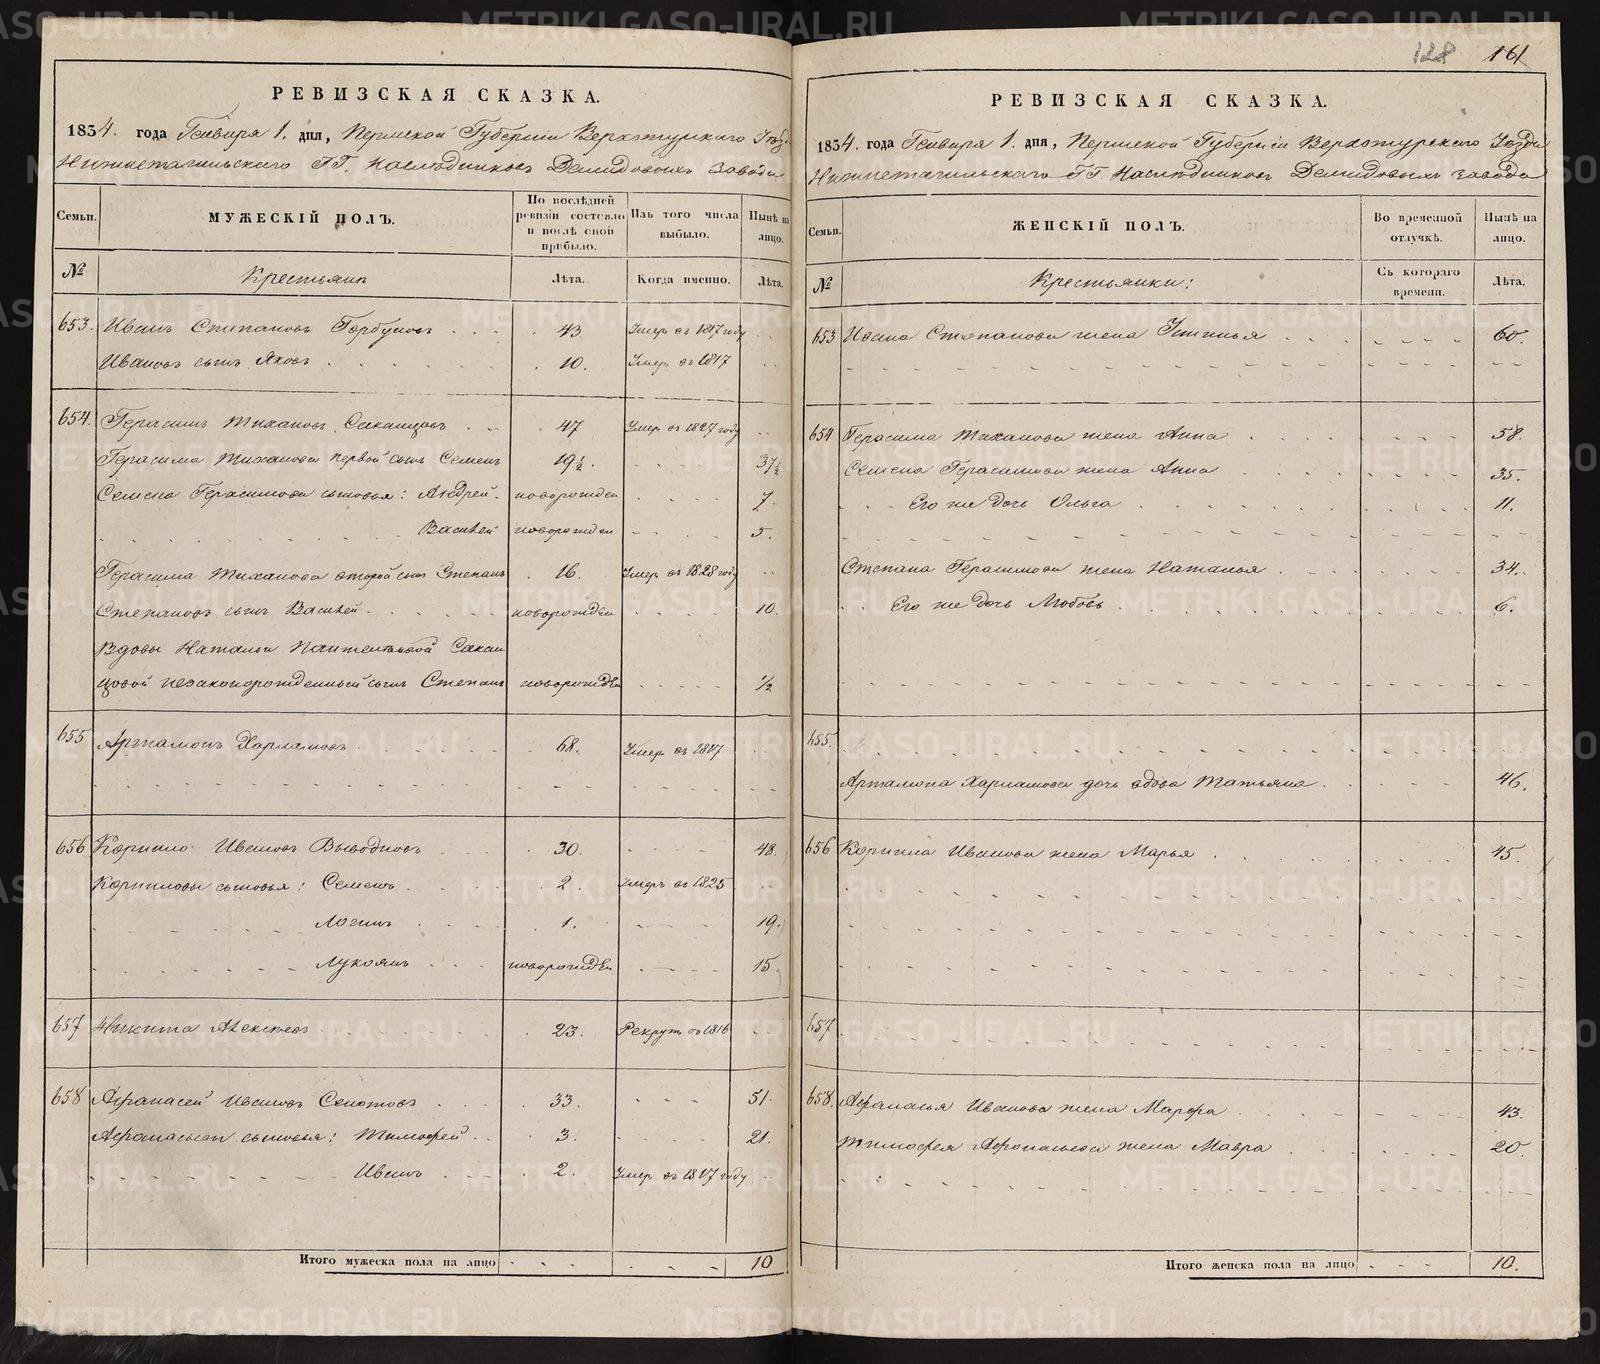 128 161
РЕВИЗСКАЯ СКАЗКА.
1834. года Генваря 1. дня, Пермской Губерніи Верхотурскаго Уѣзда
Нижнетагильскаго ГГ. Наслѣдниковъ Демидовыхъ завода
Семьи. МУЖЕСКІЙ ПОЛЪ. По послѣдней ревизіи состояло и послѣ оной прибыло. Изъ того числа выбыло. Нынѣ на лицо.
№ Крестьяне Лѣта. Когда именно. Лѣта.
653. Иванъ Степановъ Горбуновъ 43 Умер. въ 1817 году
Ивановъ сынъ Яковъ 10. Умер. въ 1817
654. Герасимъ Тихановъ 47 Умер. въ 1827 году
Герасима Тиханова первой сынъ Семенъ 19 1/2. 37 1/2
Семена Герасимова сыновья: Андрей новорожден 7.
Василей новорожден 5.
Герасима Тиханова второй сынъ Степанъ 16. Умер. въ 1828 году
Степановъ сынъ Василей новорожден 10.
Вдовы Натальи
незаконорожденный сынъ Степанъ новорожден 1/2
655 Артамонъ Харламовъ 68. Умер. въ 1827
656 Корнило Ивановъ 30. 48.
Корниловы сыновья: Семенъ 2. Умеръ въ 1825
Логинъ 1. 19.
Лукоянъ новорожден 15.
657 Никита Алексѣевъ 23. Рекрут. въ 1816
658 Афанасей Ивановъ 33. 51.
Афанасьевы сыновья: Тимофей 3. 21.
Иванъ 2. Умер. въ 1827 году
Итого мужеска пола на лицо 10
РЕВИЗСКАЯ СКАЗКА.
1834. года Генваря 1. дня, Пермской Губерніи Верхотурскаго Уѣзда
Нижнетагильскаго ГГ. Наслѣдниковъ Демидовыхъ завода
Семьи. ЖЕНСКІЙ ПОЛЪ. Во временной отлучкѣ. Нынѣ на лицо.
№ Крестьянки: Съ котораго времени. Лѣта.
653 Ивана Степанова жена Устинья 60.
654 Герасима Тиханова жена Анна 58.
Семена Герасимова жена Анна 35.
Его же дочь Ольга 11.
Степана Герасимова жена Наталья 34.
Его же дочь Любовь 6.
655.
Артамона Харламова дочь вдова Татьяна 46.
656 Корнила Иванова жена Марья 45.
657
658. Афанасья Иванова жена Марфа 43.
Тимофея Афонасьева жена Мавра 20.
Итого женска пола на лицо 10.
METRIKI.GASO-URAL.RU